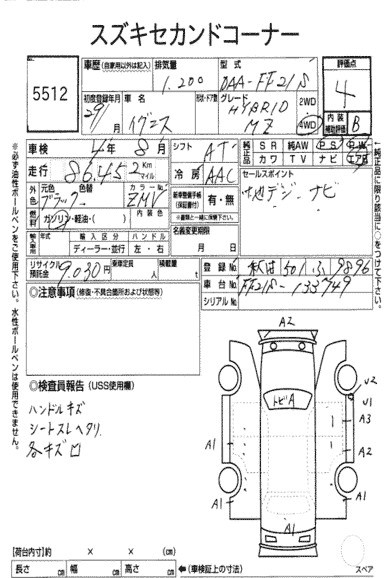 スズキセカンドコーナー
5512
車歴 (自家用以外は記入)
排気量 1.200
型式 DAA-FF21S
評価点 4
初度登録年月 29年 月
車名 イグニス
形状・ドア数
グレード HYBRID MZ
2WD
4WD
内装補助評価 B
車検 4年 8月
シフト AT
純正品
SR 純AW PS PW
カワ TV ナビ エアB
走行 86,452 Km マイル
冷房 AAC
セールスポイント
地デジ ナビ
外色 元色 ブラック 色替
カラーNo. ZMV
新車整備手帳(保証書付) 有・無
※書類と一緒に保管下さい。
燃料 ガソリン・軽油・( )
内装色
名義変更期限 月 日
輸入車用 年式 輸入区分 ハンドル
ディーラー・並行 左・右
リサイクル預託金 9,030円
乗車定員 人
積載量 t
登録No. 札幌 501 ふ 9896
車台No. FF21S-133749
シリアルNo.
◎注意事項 (修復・不具合箇所および状態等)
◎検査員報告 (USS使用欄)
ハンドルキズ
シートスレヘタリ
各キズ凹
※必ず油性ボールペンをご使用下さい。水性ボールペンは使用できません。
純正品に限り該当に○をつけて下さい。
A2
U2
U1
トビA
A1
A3
A1
A2
A1
A1
A1
【荷台内寸】 × × (cm)
長さ cm 幅 cm 高さ cm ←(車検証上の寸法)
スペア